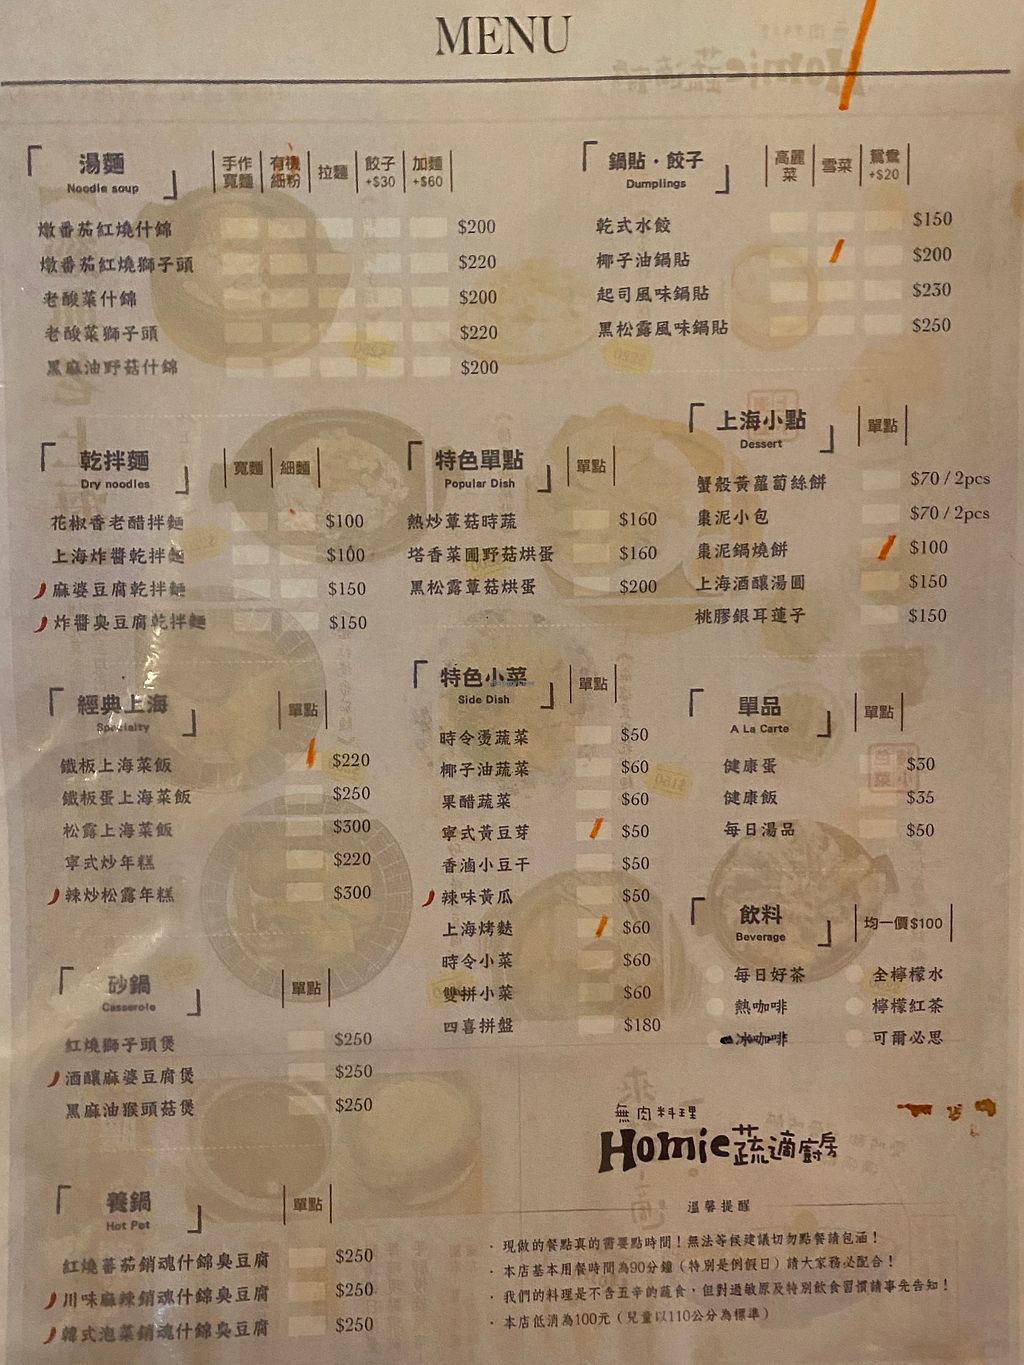 MENU
湯麵
Noodle soup
手作寬麵
有機細粉
拉麵
餃子+$30
加麵+$60
燉番茄紅燒什錦 $200
燉番茄紅燒獅子頭 $220
老酸菜什錦 $200
老酸菜獅子頭 $220
黑麻油野菇什錦 $200
鍋貼·餃子
Dumplings
高麗菜
雪菜
鴛鴦+$20
乾式水餃 $150
椰子油鍋貼 $200
起司風味鍋貼 $230
黑松露風味鍋貼 $250
乾拌麵
Dry noodles
寬麵
細麵
花椒香老醋拌麵 $100
上海炸醬乾拌麵 $100
麻婆豆腐乾拌麵 $150
炸醬臭豆腐乾拌麵 $150
特色單點
Popular Dish
單點
熱炒蕈菇時蔬 $160
塔香菜圃野菇烘蛋 $160
黑松露蕈菇烘蛋 $200
上海小點
Dessert
單點
蟹殼黃蘿蔔絲餅 $70 / 2pcs
棗泥小包 $70 / 2pcs
棗泥鍋燒餅 $100
上海酒釀湯圓 $150
桃膠銀耳蓮子 $150
經典上海
Specialty
單點
鐵板上海菜飯 $220
鐵板蛋上海菜飯 $250
松露上海菜飯 $300
寧式炒年糕 $220
辣炒松露年糕 $300
特色小菜
Side Dish
單點
時令燙蔬菜 $50
椰子油蔬菜 $60
果醋蔬菜 $60
寧式黃豆芽 $50
香滷小豆干 $50
辣味黃瓜 $50
上海烤麩 $60
時令小菜 $60
雙拼小菜 $60
四喜拼盤 $180
單品
A La Carte
單點
健康蛋 $30
健康飯 $35
每日湯品 $50
飲料
Beverage
均一價$100
每日好茶 全檸檬水
熱咖啡 檸檬紅茶
冰咖啡 可爾必思
砂鍋
Casserole
單點
紅燒獅子頭煲 $250
酒釀麻婆豆腐煲 $250
黑麻油猴頭菇煲 $250
養鍋
Hot Pot
單點
紅燒蕃茄銷魂什錦臭豆腐 $250
川味麻辣銷魂什錦臭豆腐 $250
韓式泡菜銷魂什錦臭豆腐 $250
無肉料理
Homie蔬適廚房
溫馨提醒
· 現做的餐點真的需要點時間！無法等候建議切勿點餐請包涵！
· 本店基本用餐時間為90分鐘（特別是例假日）請大家務必配合！
· 我們的料理是不含五辛的蔬食，但對過敏原及特別飲食習慣請事先告知！
· 本店低消為100元（兒童以110公分為標準）